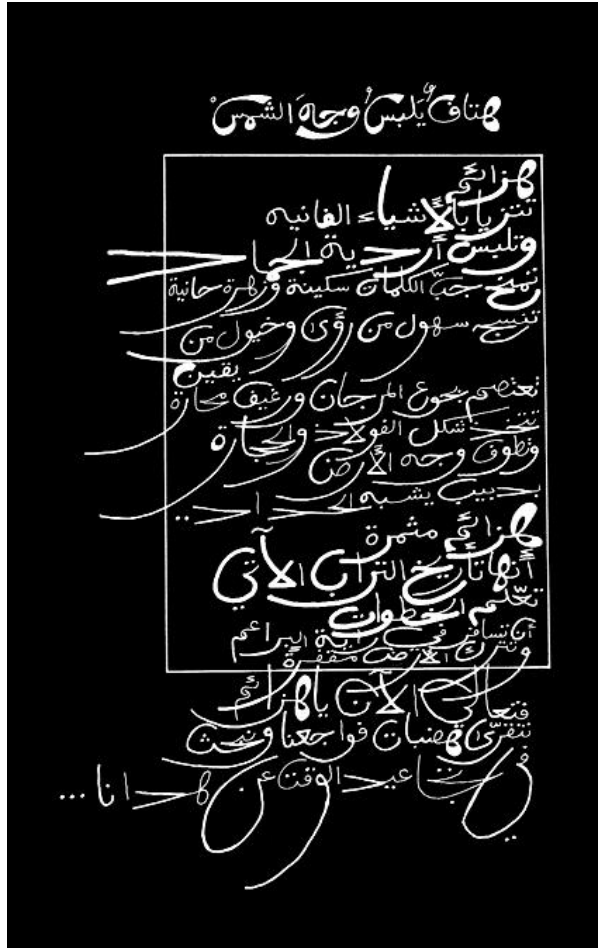 هتافٌ يَلبسُ وجهَ الشمسْ
هزائم
تتزيا بالأشياء الفانيه
وتلبس أردية الجماد
تمنح جبّ الكلمات سكينة وزهرة حانية
تنسج سهول من رؤى وخيول من
يقين
تعتصم بجوع المرجان ورغيف محارة
تتخذ شكل الفولاذ والحجارة
وتطوف وجه الأرض
بدبيب يشبه الحداد..
هزائم مثمرة
أنها تأريخ التراب الآتي
تعلّم الخطوات
أن تسافر في راية البراعم
وتترك الأرض مقفرة
فتعالي الآن يا هزائم
نتقرّى هضبات فواجعنا ونبحث
في تجاعيد الوقت عن هدانا...